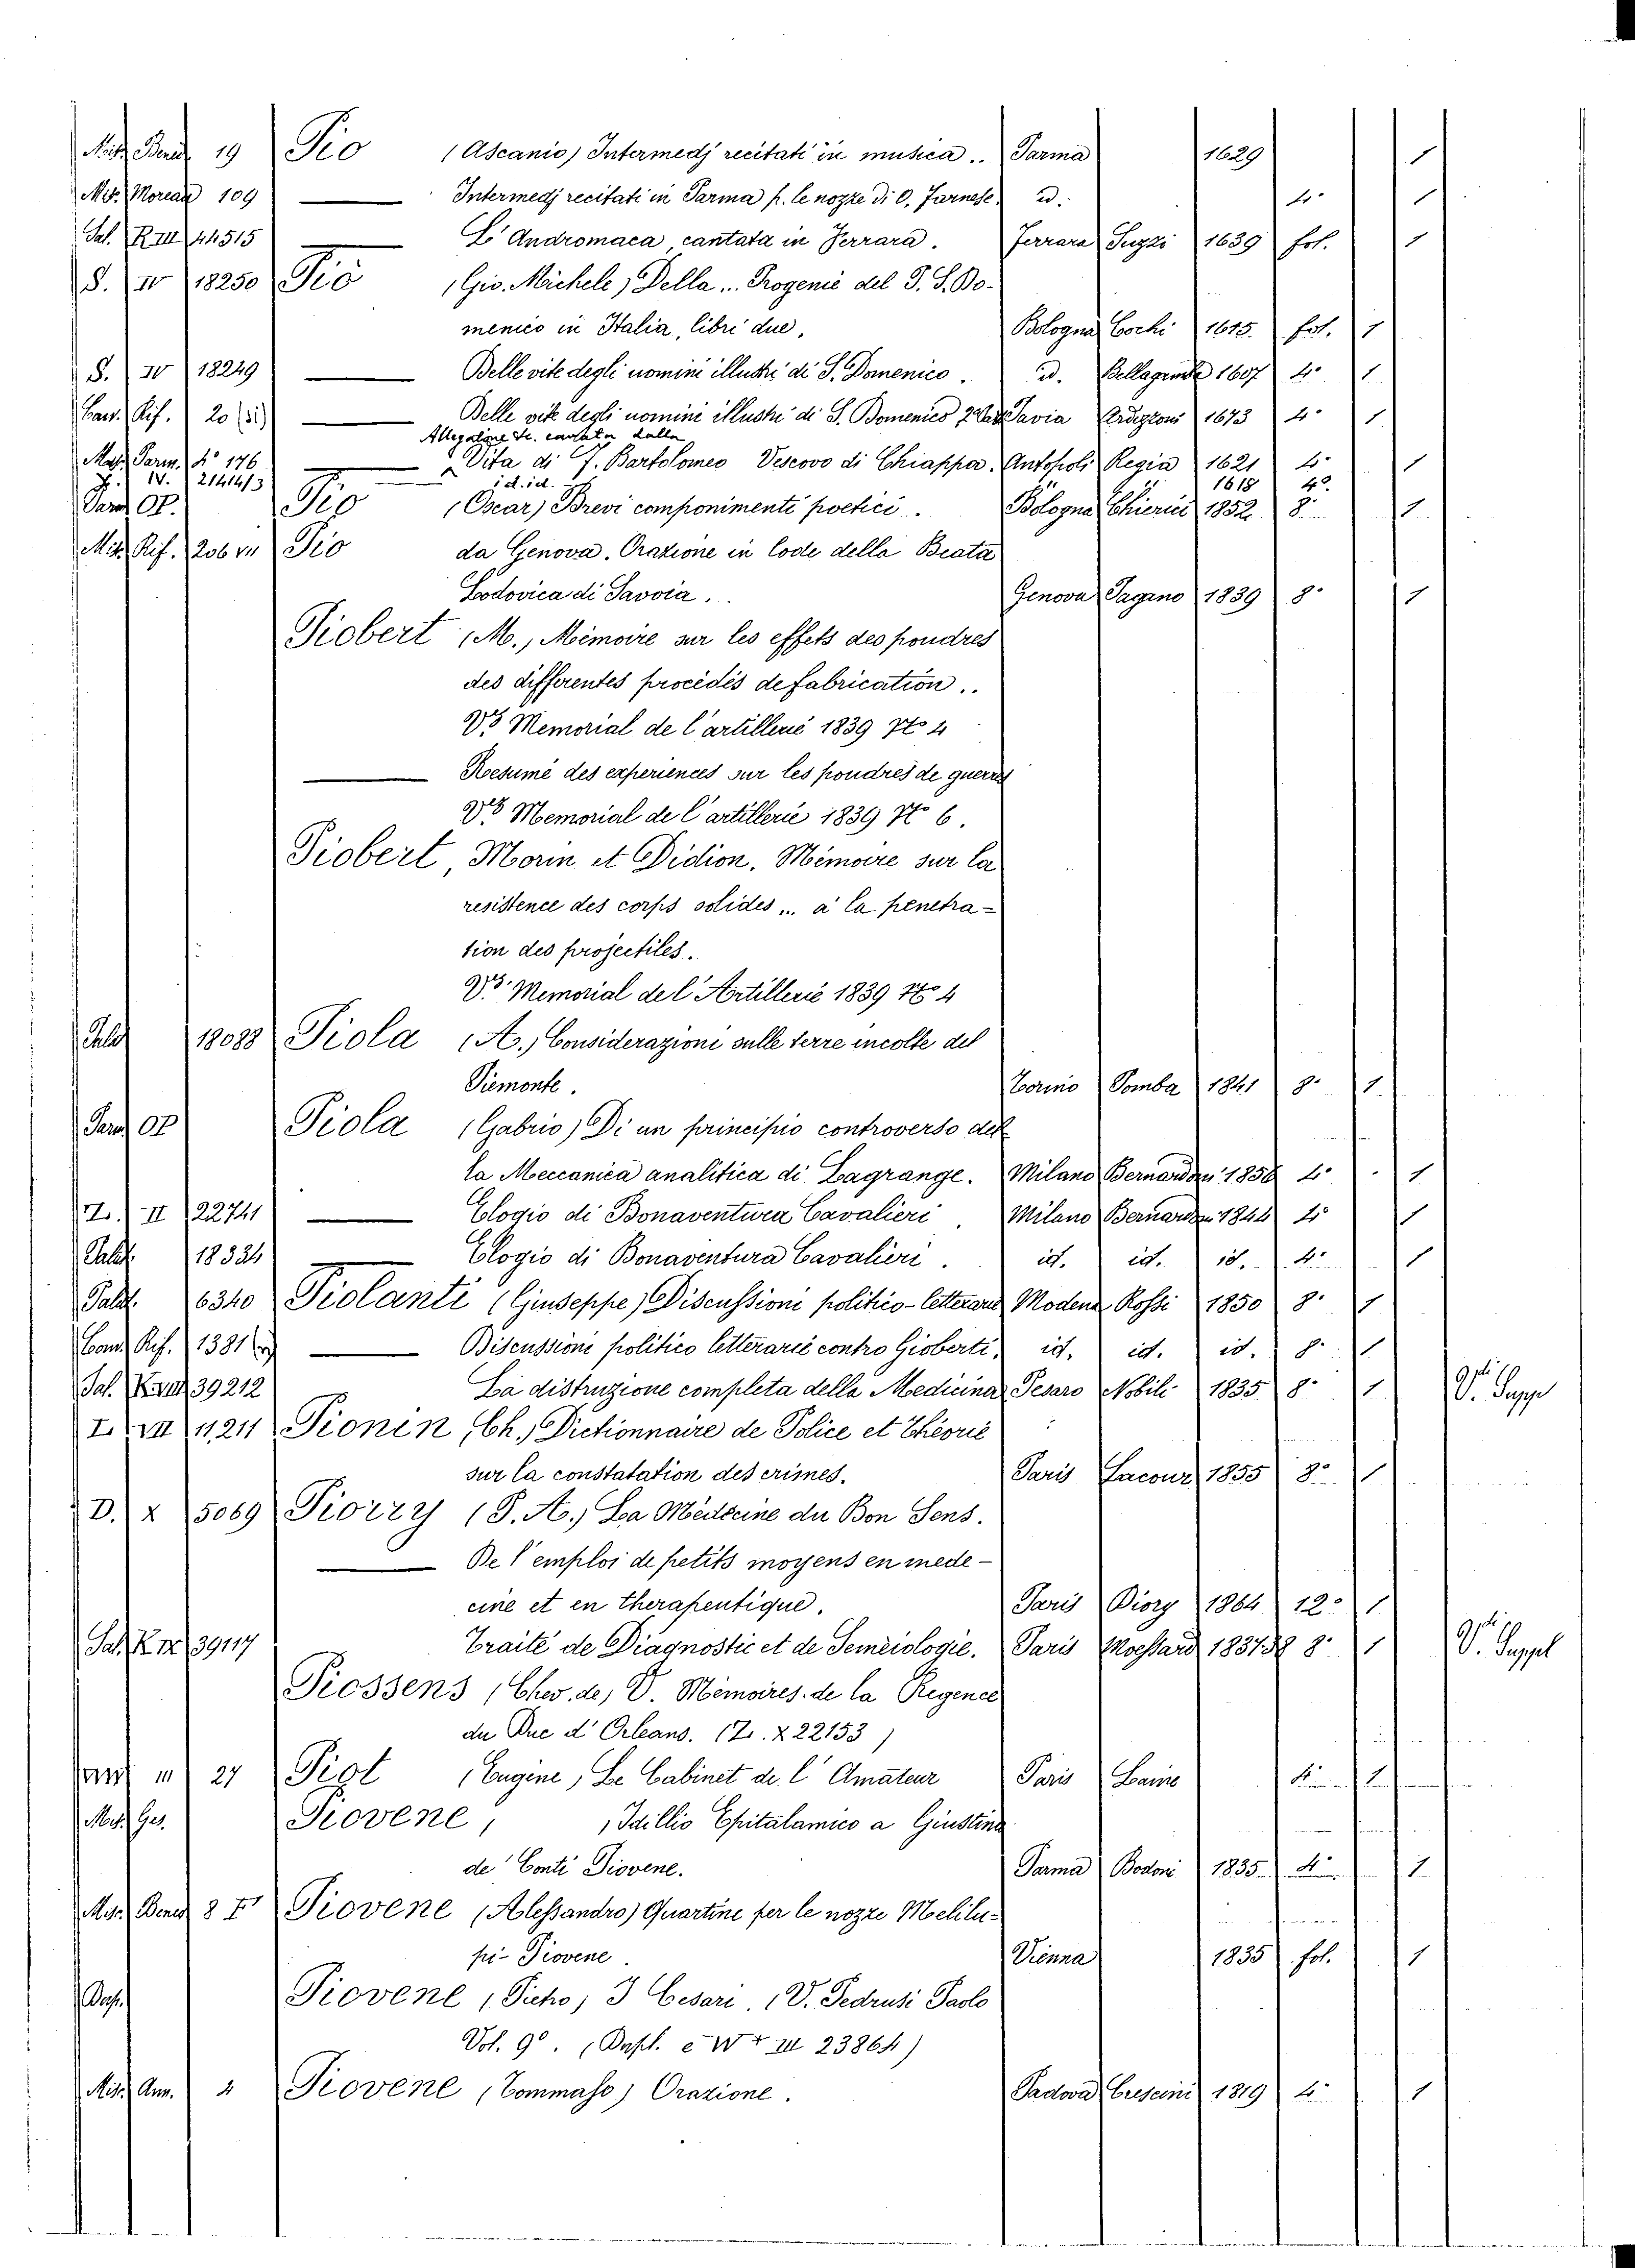 Misc. Bened. 19 Pio (Ascanio) Intermedj recitati in musica .. Parma 1629 1
Mis. Moreau 109 — Intermedj recitati in Parma p. le nozze di O. Farnese. id. 4º 1
Sal. R. III 44515 — L'Andromaca, cantata in Ferrara. Ferrara Suzzi 1639 fol. 1
S. IV 18250 Pio (Gio. Michele) Della ... Progenie del P. S. Do-
menico in Italia, libri due. Bologna Cochi 1615. fol. 1
S. IV 18249 — Delle vite degli uomini illustri di S. Domenico. id. Bellagamba 1607 4º 1
Cas. Rif. 20 (51) — Delle vite degli uomini illustri di S. Domenico 2 Par. Pavia Ardizzoni 1613 4º 1
Allegazione &c. cavata dalla
Misc. Parm. 4º 176 — Vita di F. Bartolomeo Vescovo di Chiappa. Antopoli Regia 1621 4º 1
IV. 21414/3 — id. id. 1618 4º
Parm. OP. Pio (Oscar) Brevi componimenti poetici. Bologna Chierici 1852. 8º 1
Mis. Rif. 206 VII Pio da Genova. Orazione in lode della Beata
Lodovica di Savoia. Genova Pagano 1839 8º 1
Piobert (M.) Mémoire sur les effets des poudres
des differentes procédés de fabrication..
Vs Memorial de l'artillerié 1839 Nº 4
— Resumé des experiences sur les poudres de guerre
Vs Memorial de l'artillerie 1839 Nº 6.
Piobert, Morin et Didion. Mémoire sur la
resistence des corps solides ... a la penetra-
tion des projectiles.
Vs Memorial de l'Artillerie 1839 Nº 4
Pald. 18088 Piola (A.) Considerazioni sulle terre incolte del
Piemonte. Torino Pomba 1841 8º 1
Parm. OP Piola (Gabrio) Di un principio controverso del
la Meccanica analitica di Lagrange. Milano Bernardoni 1858 4º 1
Z. II 22741 — Elogio di Bonaventura Cavalieri. Milano Bernardoni 1844 4º 1
Palat. 18324 — Elogio di Bonaventura Cavalieri. id. id. id. 4º 1
Palat. 6340 Piolanti (Giuseppe) Discussioni politico-letterarie Modena Rossi 1850 8º 1
Com. Rif. 1381 — Discussioni politico letterarié contro Gioberti. id. id. id. 8º 1
Sal. K. VIII 39212 La distruzione completa della Medicina Pesaro Nobili 1835 8º 1
I. VII 11,211 Pionin, Ch.) Dictionnaire de Police et Théorié
sur la constatation des crimes. Paris Lacour 1855 8º 1
D. X 5069 Piorry (P. A.) La Médecine du Bon Sens.
— De l'emploi de petits moyens en mede-
cine et en therapeutique. Paris Piory 1864 12º 1
Sal. K IX 39117 Traité de Diagnostic et de Seméiologie. Paris Moessard 1837 38 8º 1
Piossens (Chev. de) V. Mémoires. de la Regence
du Duc d'Orleans. (Z. X 22153)
III 27 Piot (Eugène) Le Cabinet de l'Amateur Paris Laine 4º 1
Misc. Ges. Piovene, Idillio Epitalamico a Giustina
de' Conti Piovene. Parma Bodoni 1835. 4º 1
Misc. Bened. 8 Piovene (Alessandro) Quartine per le nozze Melilu-
pi-Piovene. Vienna 1835 fol. 1
Piovene (Picho) I Cesari. (V. Pedrusi Paolo
Vol. 9º. (Dupl. e W + III 23864)
Mis. Ann. 2 Piovene (Tommaso) Orazione. Padova Crescini 1819 4º 1